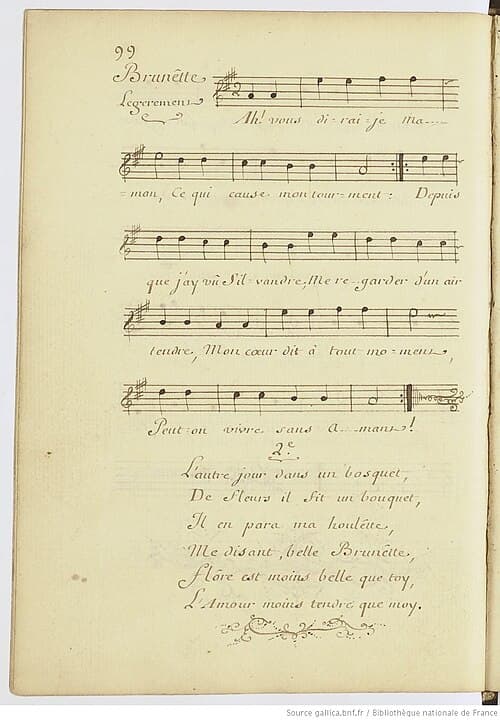 99
Brunêtte
Legerement
Ah! vous di-rai-je ma-
=man, Ce qui cause mon tour-ment: Depuis
que j'ay vû Silvandre, Me re-garder d'un air
tendre, Mon cœur dit à tout mo-ment,
Peut-on vivre sans a-mant!
2.e
L'autre jour dans un bosquet,
De fleurs il fit un bouquet,
Il en para ma houlêtte,
Me disant, belle Brunêtte,
Flôre est moins belle que toy,
L'Amour moins tendre que moy.
Source gallica.bnf.fr / Bibliothèque nationale de France